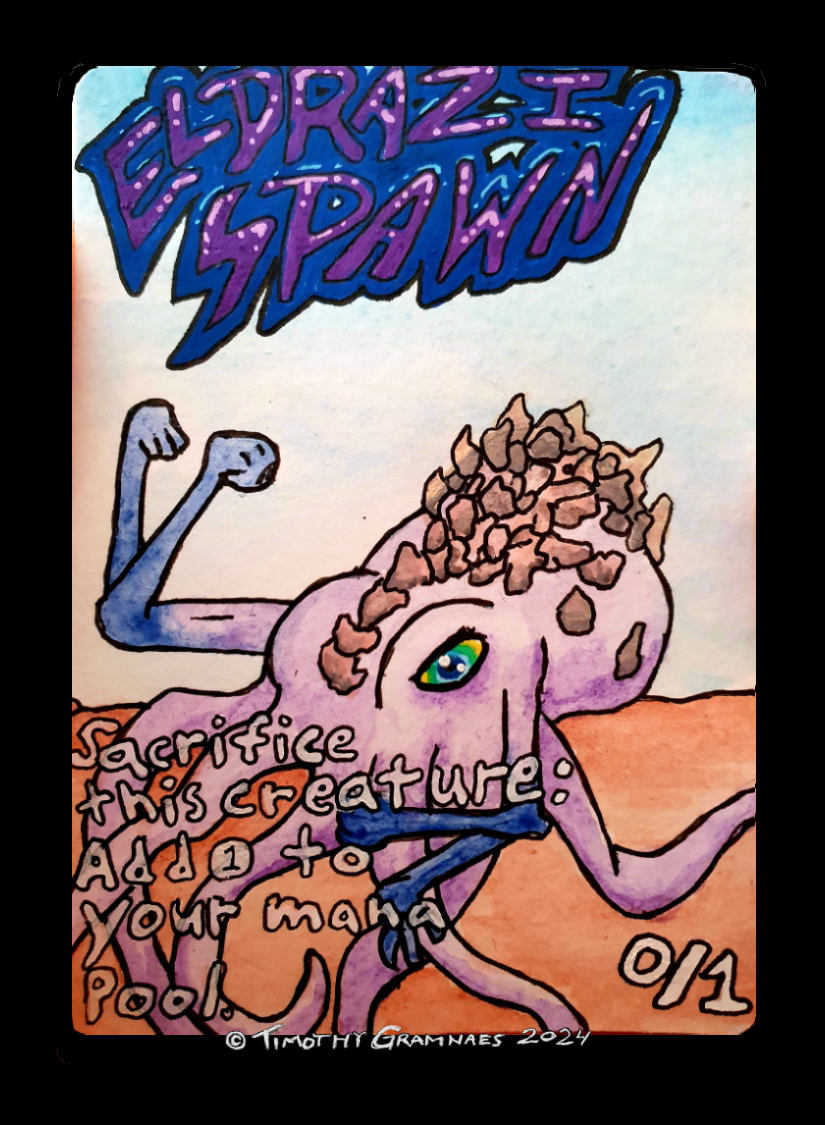 ELDRAZI
SPAWN
Sacrifice
this creature:
Add 1 to
your mana
Pool.
0/1
© TIMOTHY GRAMNAES 2024